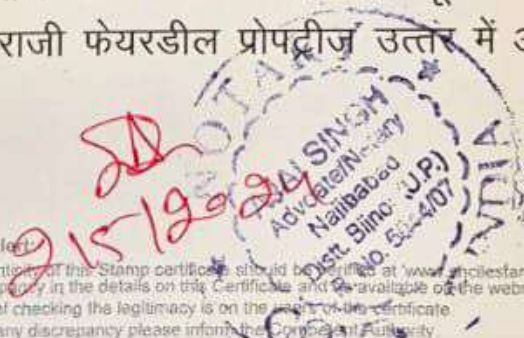 राजी फेयरडील प्रोपर्टीज उत्तर में
2/5/2024
NOTARY
AJAI SINGH
Advocate/Notary
Najibabad
Distt. Bijnor (U.P.)
No.
INDIA
of this Stamp certificate should be verified at
in the details on this Certificate and as available on the
of checking the legitimacy is on the users of the certificate
any discrepancy please inform the Competent Authority